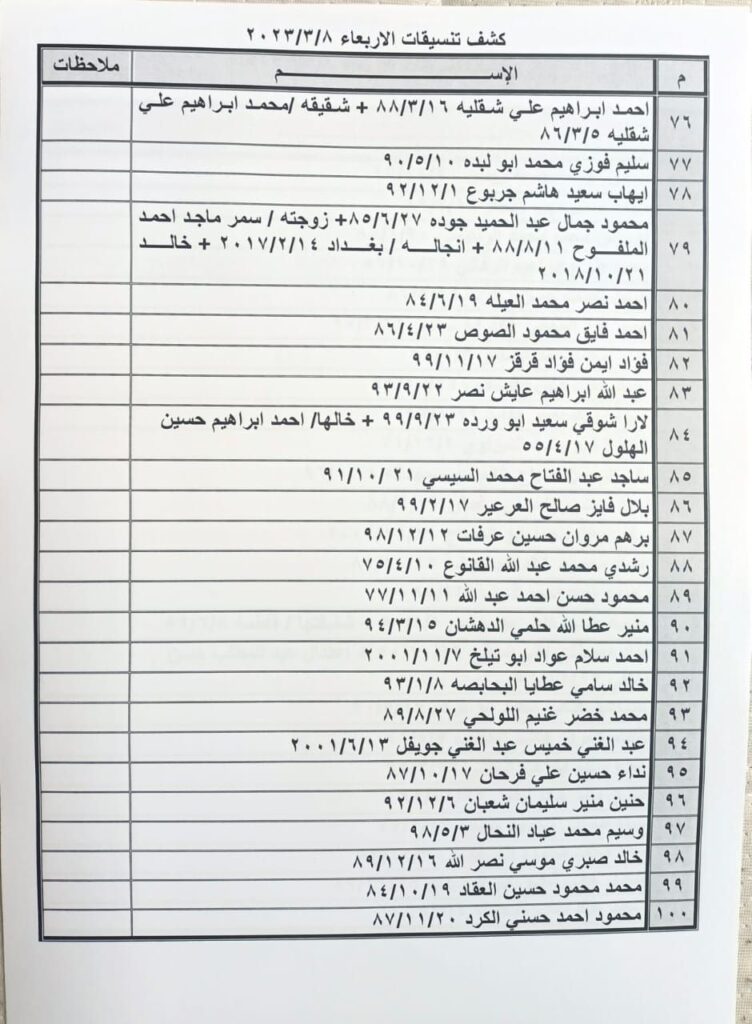 كشف تنسيقات الاربعاء ٢٠٢٣/٣/٨
م الإســـم ملاحظات
٧٦ احمد ابراهيم علي شقليه ٨٨/٣/١٦ + شقيقه /محمد ابراهيم علي
شقليه ٨٦/٣/٥
٧٧ سليم فوزي محمد ابو لبده ٩٠/٥/١٠
٧٨ ايهاب سعيد هاشم جربوع ٩٢/١٢/١
٧٩ محمود جمال عبد الحميد جوده ٨٥/٦/٢٧+ زوجته / سمر ماجد احمد
الملفوح ٨٨/٨/١١ + انجاله / بغداد ٢٠١٧/٢/١٤ + خالد
٢٠١٨/١٠/٢١
٨٠ احمد نصر محمد العيله ٨٤/٦/١٩
٨١ احمد فايق محمود الصوص ٨٦/٤/٢٣
٨٢ فؤاد ايمن فؤاد قرقز ٩٩/١١/١٧
٨٣ عبد الله ابراهيم عايش نصر ٩٣/٩/٢٢
٨٤ لارا شوقي سعيد ابو ورده ٩٩/٩/٢٣ + خالها/ احمد ابراهيم حسين
الهلول ٥٥/٤/١٧
٨٥ ساجد عبد الفتاح محمد السيسي ٩١/١٠/٢١
٨٦ بلال فايز صالح العرعير ٩٩/٢/١٧
٨٧ برهم مروان حسين عرفات ٩٨/١٢/١٢
٨٨ رشدي محمد عبد الله القانوع ٧٥/٤/١٠
٨٩ محمود حسن احمد عبد الله ٧٧/١١/١١
٩٠ منير عطا الله حلمي الدهشان ٩٤/٣/١٥
٩١ احمد سلام عواد ابو تيلخ ٢٠٠١/١١/٧
٩٢ خالد سامي عطايا البحابصه ٩٣/١/٨
٩٣ محمد خضر غنيم اللولحي ٨٩/٨/٢٧
٩٤ عبد الغني خميس عبد الغني جويفل ٢٠٠١/٦/١٣
٩٥ نداء حسين علي فرحان ٨٧/١٠/١٧
٩٦ حنين منير سليمان شعبان ٩٢/١٢/٦
٩٧ وسيم محمد عياد النحال ٩٨/٥/٣
٩٨ خالد صبري موسي نصر الله ٨٩/١٢/١٦
٩٩ محمد محمود حسين العقاد ٨٤/١٠/١٩
١٠٠ محمود احمد حسني الكرد ٨٧/١١/٢٠